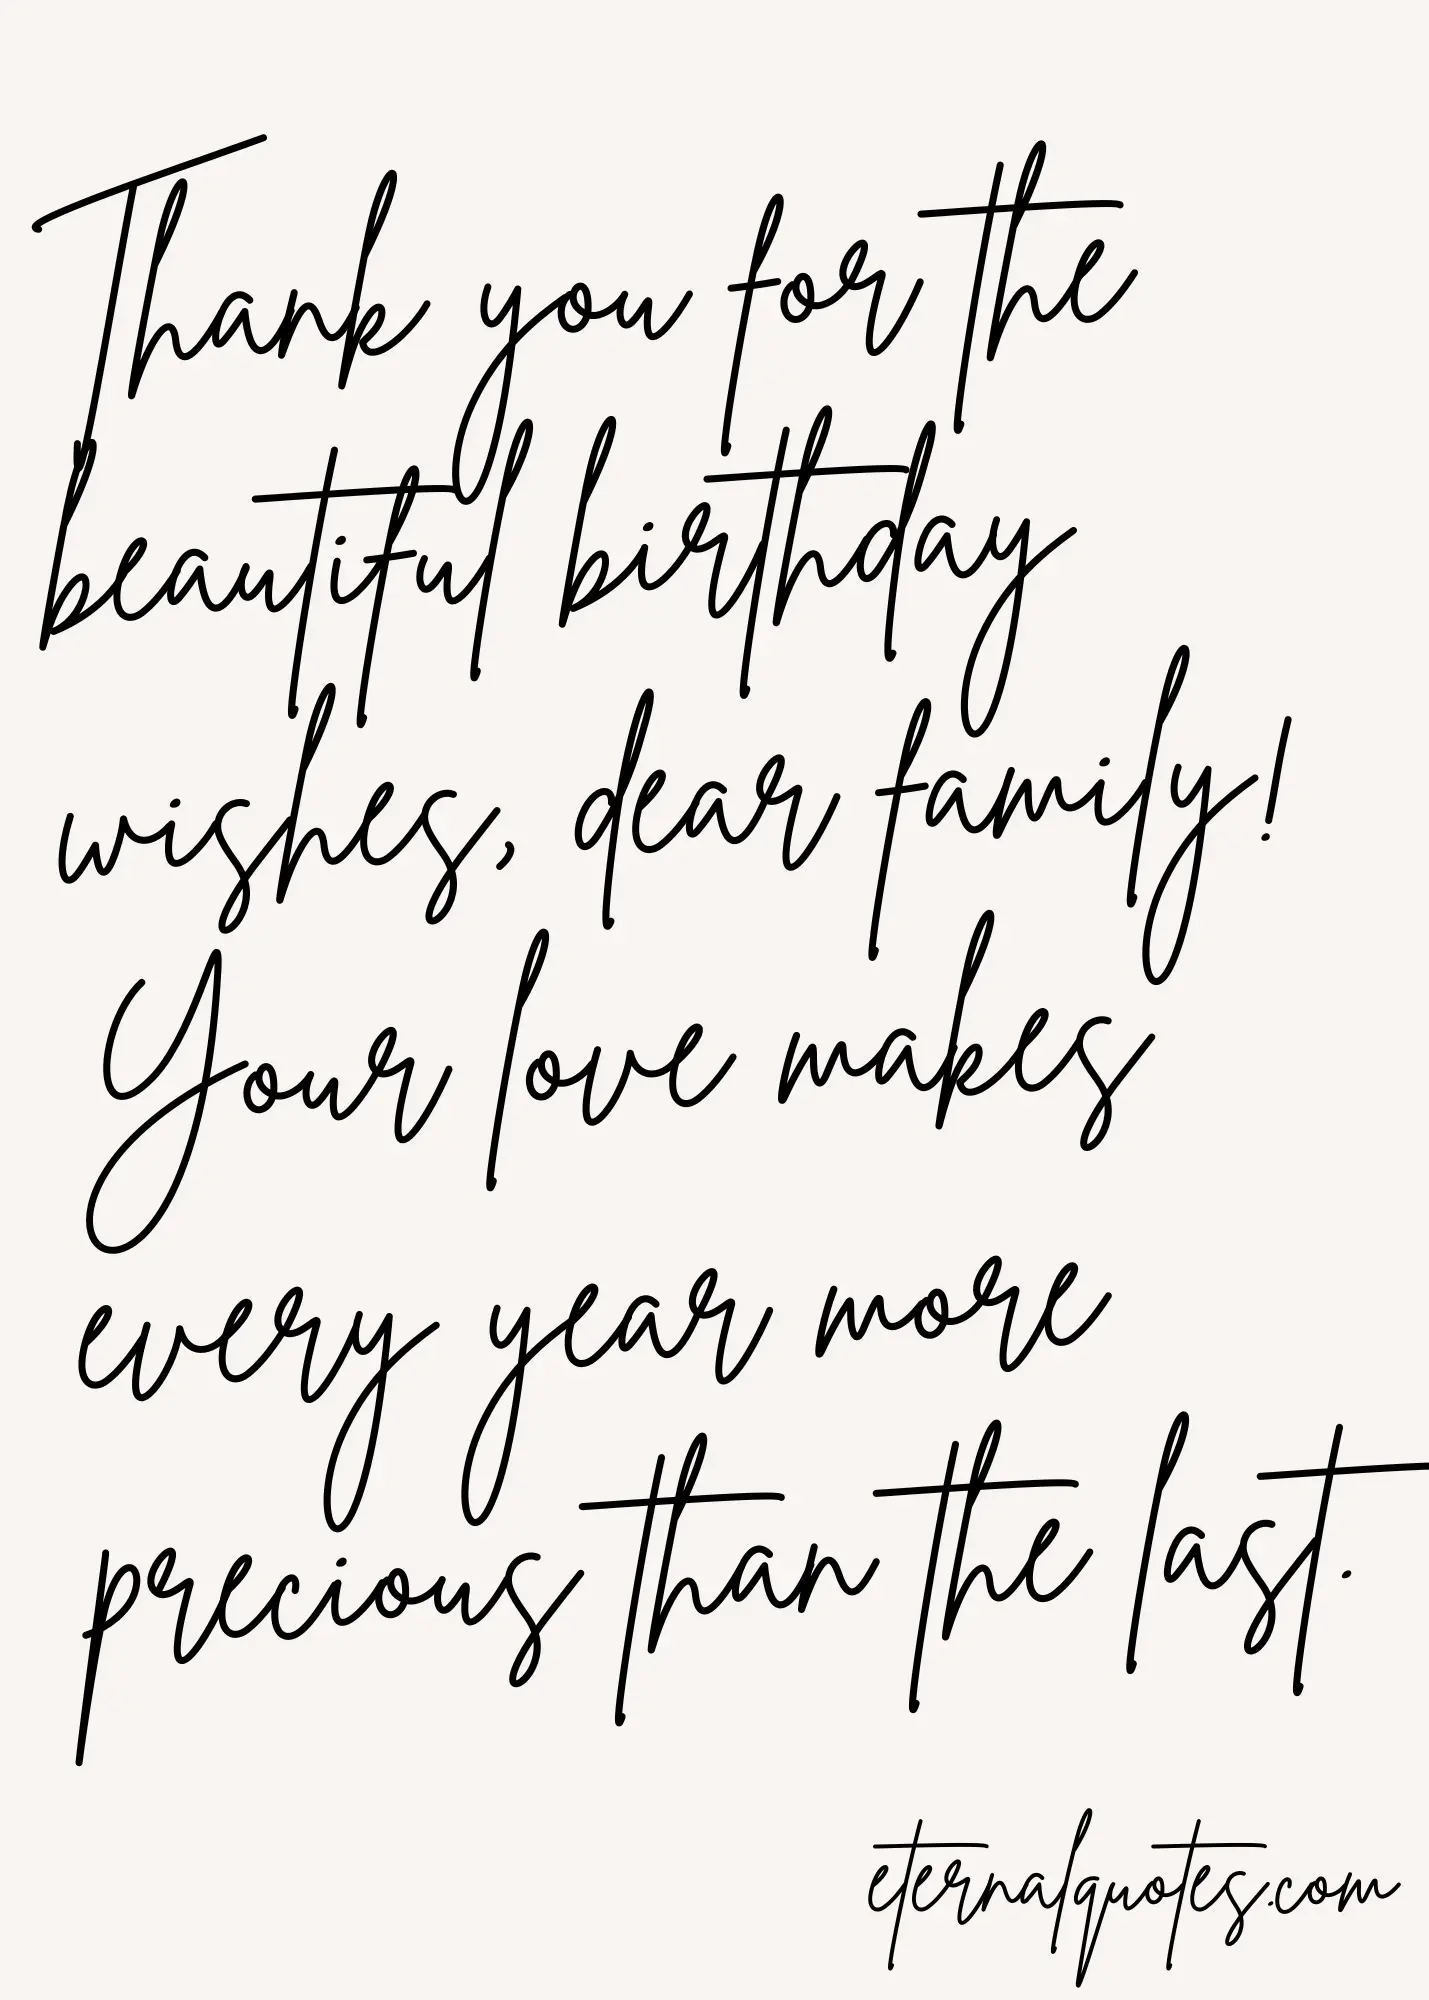 Thank you for the
beautiful birthday
wishes, dear family!
Your love makes
every year more
precious than the last.
eternalquotes.com